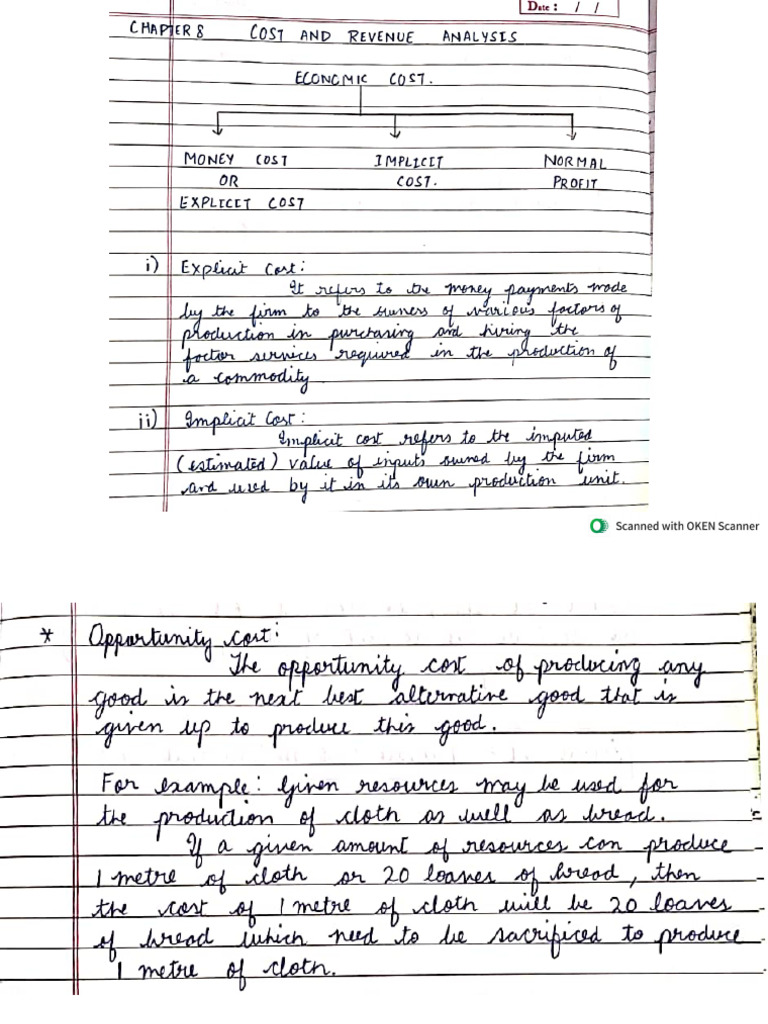 Date: / /
CHAPTER 8 COST AND REVENUE ANALYSIS
ECONOMIC COST.
MONEY COST IMPLICIT NORMAL
OR COST. PROFIT
EXPLICIT COST
i) Explicit Cost:
It refers to the money payments made
by the firm to the owners of various factors of
production in purchasing and hiring the
factor services required in the production of
a commodity
ii) Implicit Cost:
Implicit cost refers to the imputed
(estimated) value of inputs owned by the firm
and used by it in its own production unit.
Scanned with OKEN Scanner
* Opportunity cost:
The opportunity cost of producing any
good is the next best alternative good that is
given up to produce this good.
For example: Given resources may be used for
the production of cloth as well as bread.
If a given amount of resources can produce
1 metre of cloth or 20 loaves of bread, then
the cost of 1 metre of cloth will be 20 loaves
of bread which need to be sacrificed to produce
1 metre of cloth.